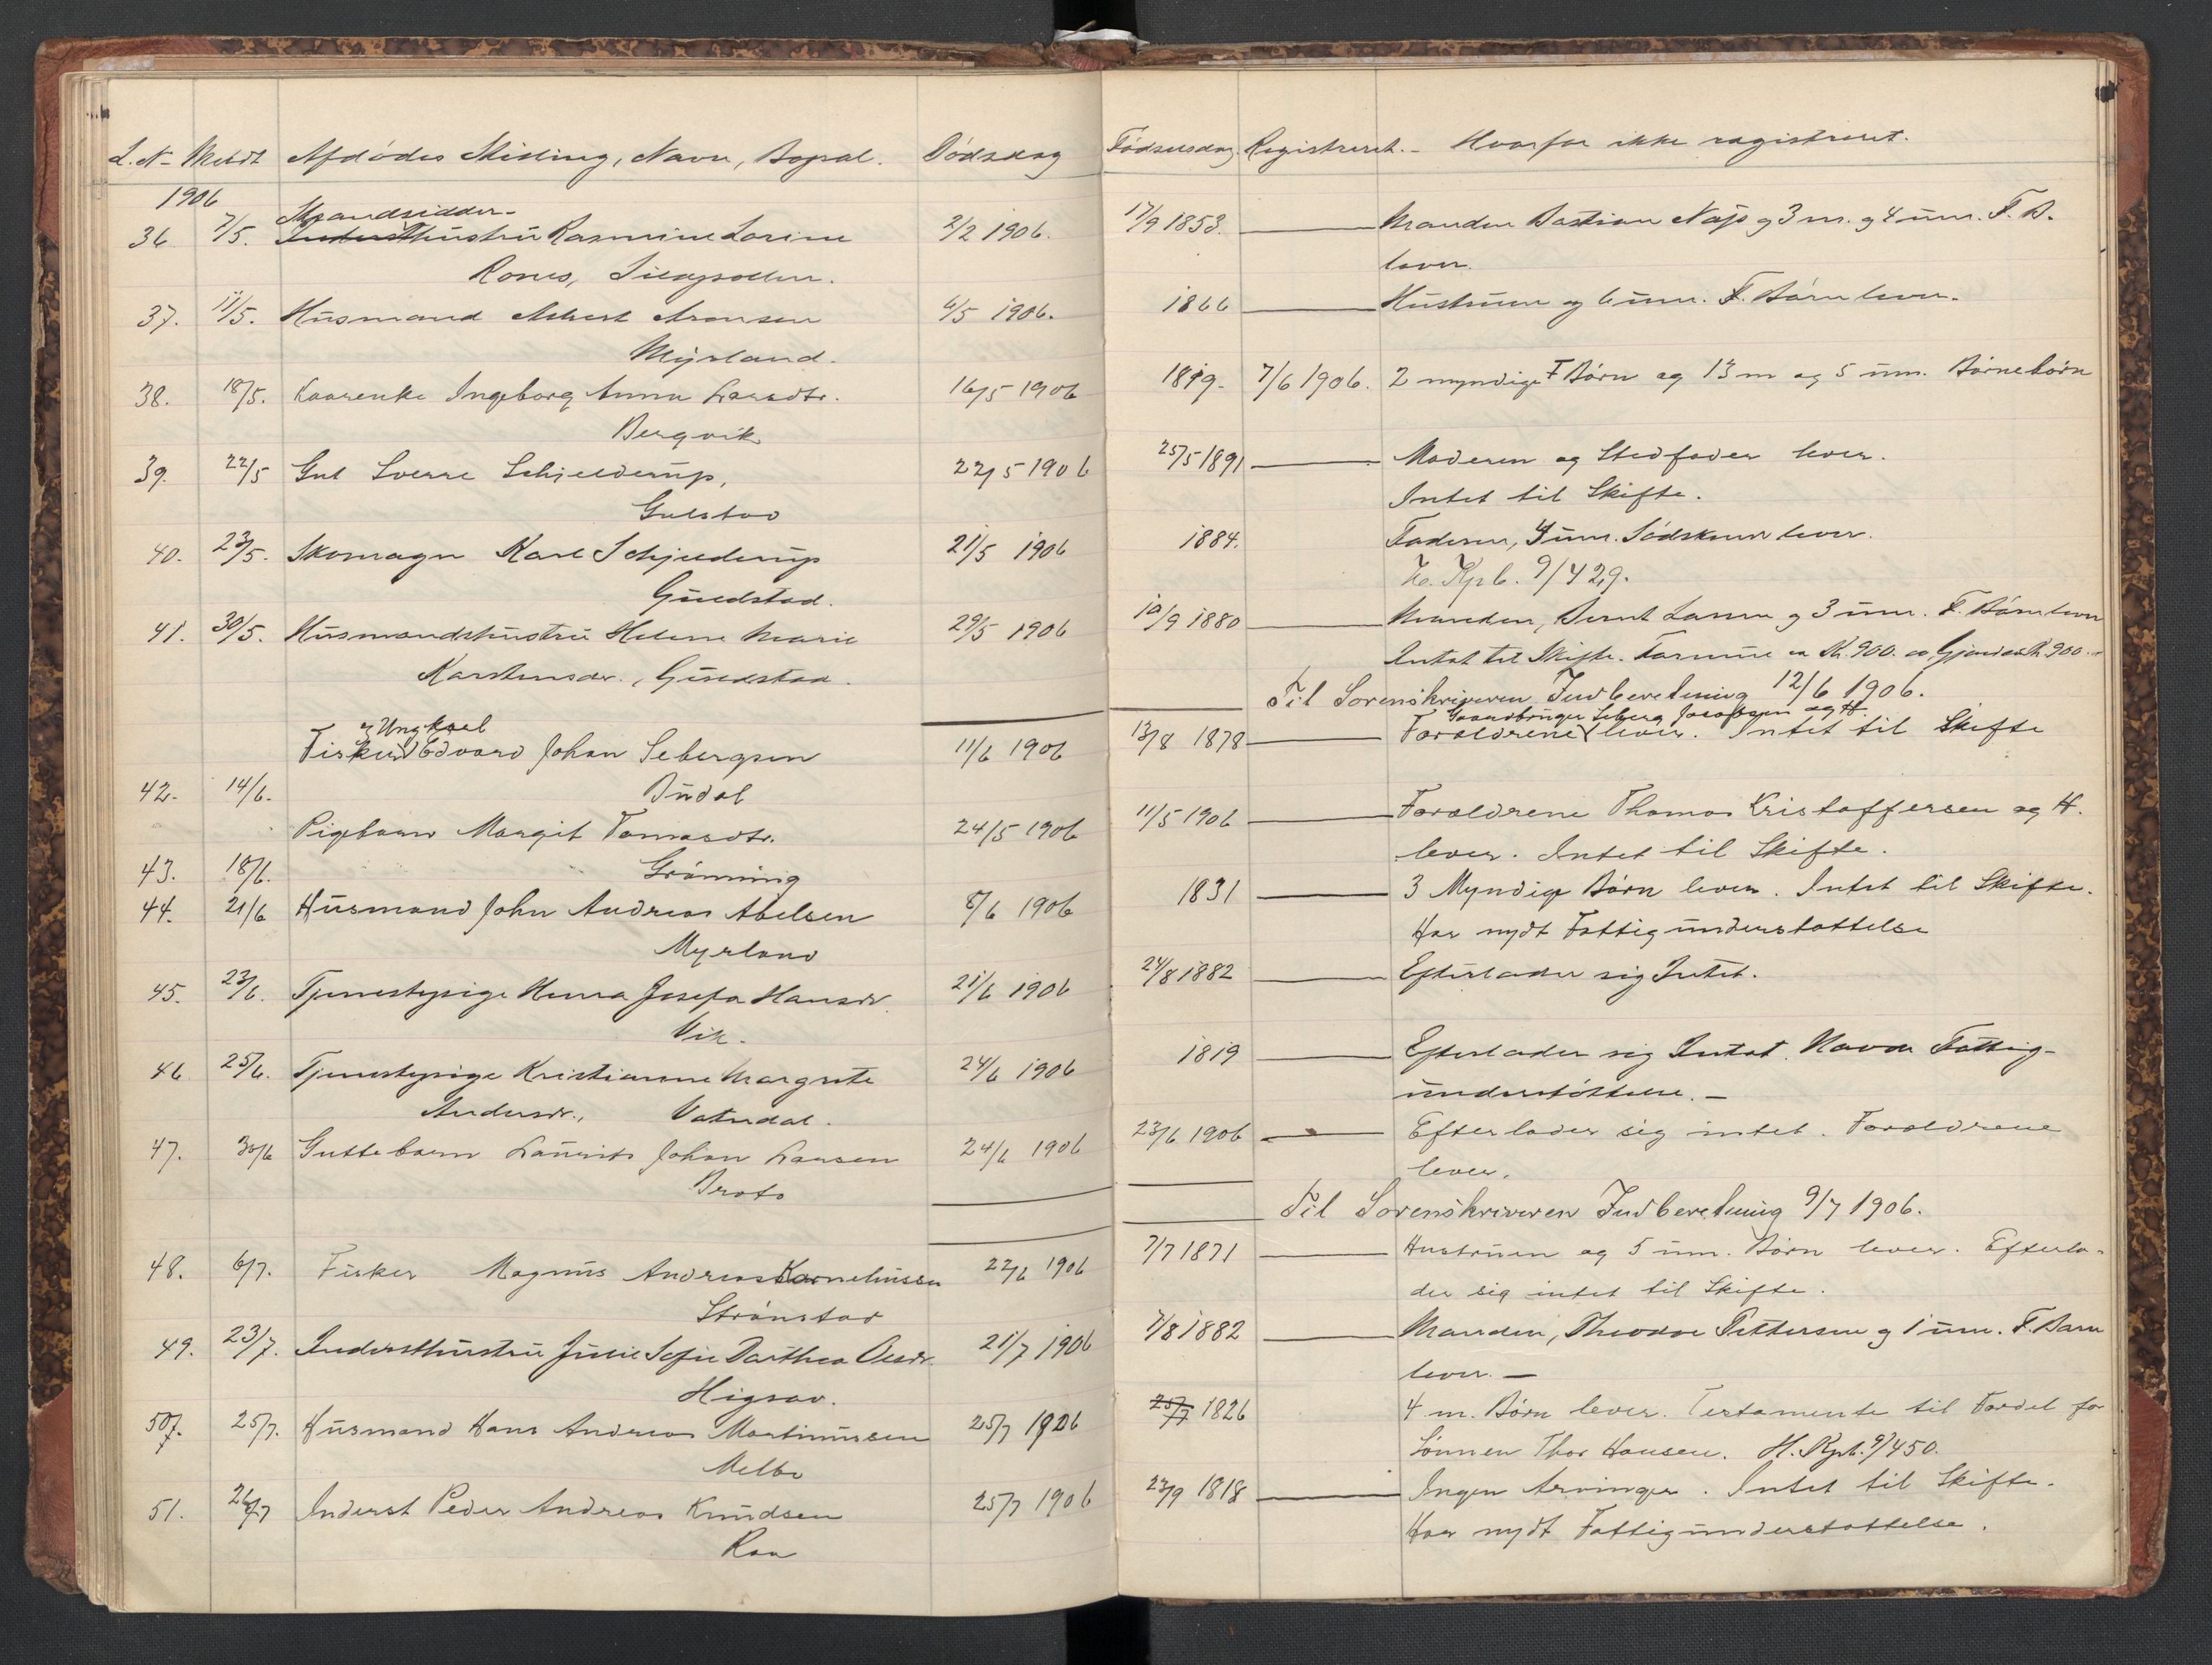 L. N- Meldt Afdødes Stilling, Navn, Bopæl. Dødsdag
1906
Strandsidder-
36. 7/5. Inderst hustru Rasmine Lorine 2/2 1906.
Rones,
37. 11/5. Husmand Albert Aronsen 6/5 1906.
Myrland.
38. 18/5. Kaarenke Ingeborg Anna Larsdtr. 16/5 1906
Bergvik
39. 22/5 Gut Sverre Schjelderup, 22/5 1906
Gulstad
40. 23/5. Skomager Karl Schjelderup 21/5 1906
Guldstad.
41. 30/5. Husmandshustru Helene Marie 29/5 1906
Karstensdr., Guldstad.
og Ungkarl
Fisker Edvard Johan Sebergsen 11/6 1906
42. 14/6. Budal
Pigebarn Margit Tomasdtr. 24/5 1906
43. 18/6. Grønning
44. 21/6 Husmand John Andreas Abelsen 8/6 1906
Myrland
45. 23/6. Tjenestepige Josefa Hansdr. 21/6 1906
Vik.
46 25/6. Tjenestepige Kristianne Margrete 24/6 1906
Andersdr., Vatndal.
47. 30/6 Guttebarn Laurits Johan Larsen 24/6 1906
48. 6/7. Fisker Magnus Andreas Korneliussen 22/6 1906
Strønstad
49. 23/7. Indersthustru Julie Sofie Dorthea Olsdr. 21/7 1906
Higrav.
50. 25/7. Husmand Hans Andreas Martinussen 25/7 1906
Melbo
51. 26/7 Inderst Peder Andreas Knudsen 25/7 1906
Fødselsdag. Registreret. - Hvorfor ikke registreret.
17/9 1853. Manden Bastian og 3 m. og 4 um. F. B.
lever.
1866 Hustruen og 6 um. F. Børn lever.
1819. 7/6 1906. 2 myndige F Børn og 13 m og 5 um. Børnebørn
25/5 1891 Moderen og Stedfader lever.
Intet til Skifte.
1884. Faderen, 4 um. Sødskene lever.
H. Kpb. 9/429.
10/9 1880 Manden, Bernt Larsen og 3 um. F. Børn lever
Intet til Skifte. Formue ca Kr. 900. og Gjæld ca Kr. 900.
Til Sorenskriveren Indberetning 12/6 1906.
Gaardbruger Seberg Jacobsen og H.
13/8 1878 Forældrene lever. Intet til Skifte
11/5 1906 Forældrene Thomas Kristoffersen og H.
lever. Intet til Skifte.
1831 3 Myndige Børn lever. Intet til Skifte.
Har nydt Fattigunderstøttelse
24/8 1882 Efterlader sig Intet.
1819 Efterlader sig Intet. Havde Fattig-
understøttelse. -
23/6 1906 Efterlader sig intet. Forældrene
lever.
Til Sorenskriveren Indberetning 9/7 1906.
7/7 1871 Hustruen og 5 um. Børn lever. Efterla-
der sig intet til Skifte.
7/8 1882 Manden, Theodor Pettersen og 1 um. F. Barn
lever. -
25/7 1826 4 m. Børn lever. Testamente til Fordel for
Sønnen Thor Hansen. H. Kpb. 9/450.
23/9 1818 Ingen Arvinger. Intet til Skifte.
Har nydt Fattigunderstøttelse.